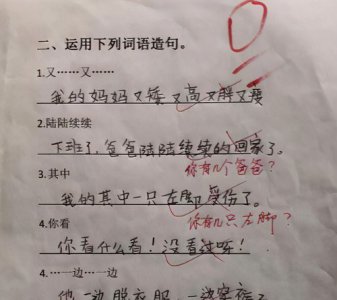 二、运用下列词语造句。
1.又……又……
我的妈妈又矮又高又胖又瘦
2.陆陆续续
下班了,爸爸陆陆续续的回家了。
你有几个爸爸?
3.其中
我的其中一只左脚受伤了。
你有几只左脚?
4.你看
你看什么看!没看过呀!
4.…一边…一边
他一边脱衣服,一边穿衣